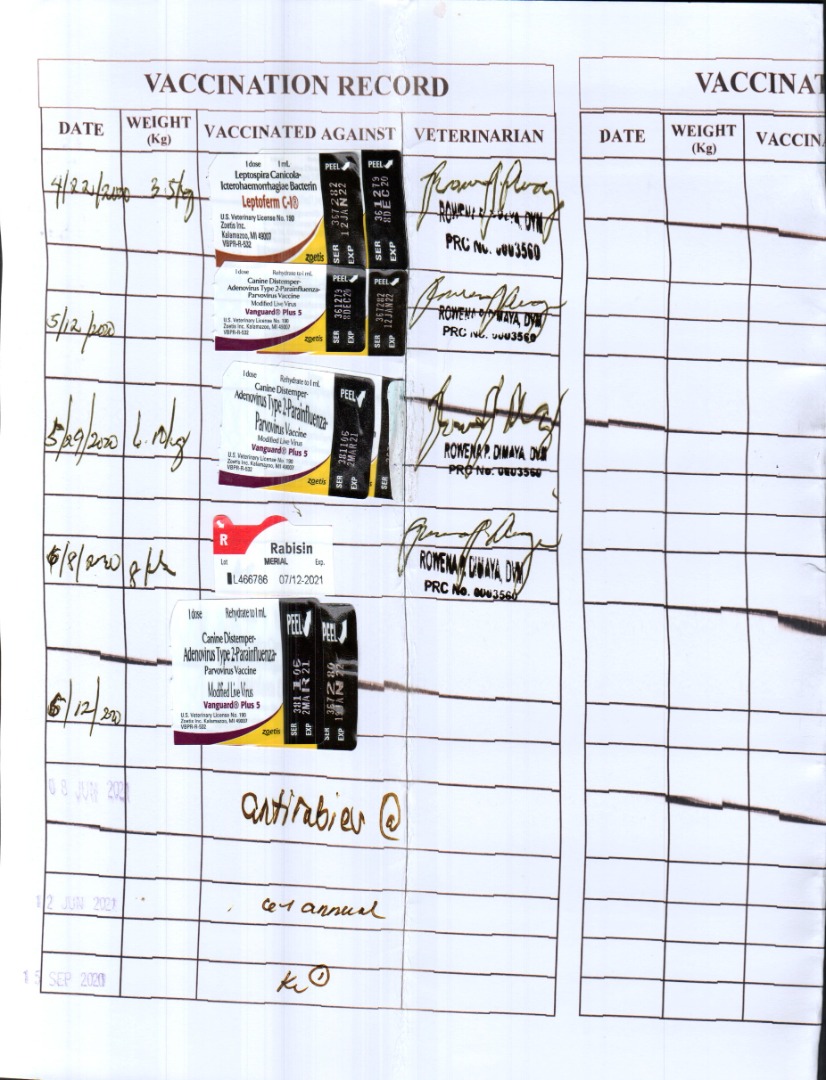 VACCINATION RECORD
DATE WEIGHT (Kg) VACCINATED AGAINST VETERINARIAN
4/22/2020 3.5kg
1 dose 1 mL
Leptospira Canicola-
Icterohaemorrhagiae Bacterin
Leptoferm C-I®
U.S. Veterinary License No. 190
Zoetis Inc.
Kalamazoo, MI 49007
VBPR-R-532
zoetis
PEEL
SER 367282
EXP 12JAN22
PEEL
SER 361279
EXP 8DEC20
DVM
PRC No. 0003560
5/12/2020
1 dose Rehydrate to 1 mL
Canine Distemper-
Adenovirus Type 2-Parainfluenza-
Parvovirus Vaccine
Modified Live Virus
Vanguard® Plus 5
U.S. Veterinary License No. 190
Zoetis Inc. Kalamazoo, MI 49007
VBPR-R-532
zoetis
PEEL
SER 361279
EXP 8DEC20
PEEL
SER 367282
EXP 12JAN22
ROWENA P. DIMAYA, DVM
PRC No. 0003560
5/29/2020
1 dose Rehydrate to 1 mL
Canine Distemper-
Adenovirus Type 2-Parainfluenza-
Parvovirus Vaccine
Modified Live Virus
Vanguard® Plus 5
U.S. Veterinary License No. 190
Zoetis Inc. Kalamazoo, MI 49007
VBPR-R-532
zoetis
PEEL
SER 381106
EXP 2MAR21
SER
EXP
ROWENA P. DIMAYA, DVM
PRC No. 0003560
6/8/2020
R
Rabisin
Lot MERIAL Exp.
L466786 07/12-2021
ROWENA P. DIMAYA, DVM
PRC No. 0003560
6/12/2020
1 dose Rehydrate to 1 mL
Canine Distemper-
Adenovirus Type 2-Parainfluenza-
Parvovirus Vaccine
Modified Live Virus
Vanguard® Plus 5
U.S. Veterinary License No. 190
Zoetis Inc. Kalamazoo, MI 49007
VBPR-R-532
zoetis
PEEL
SER 381106
EXP 2MAR21
PEEL
SER
EXP
08 JUN 2021
antirabies
12 JUN 2021
annual
15 SEP
VACCINAT
DATE WEIGHT (Kg) VACCIN